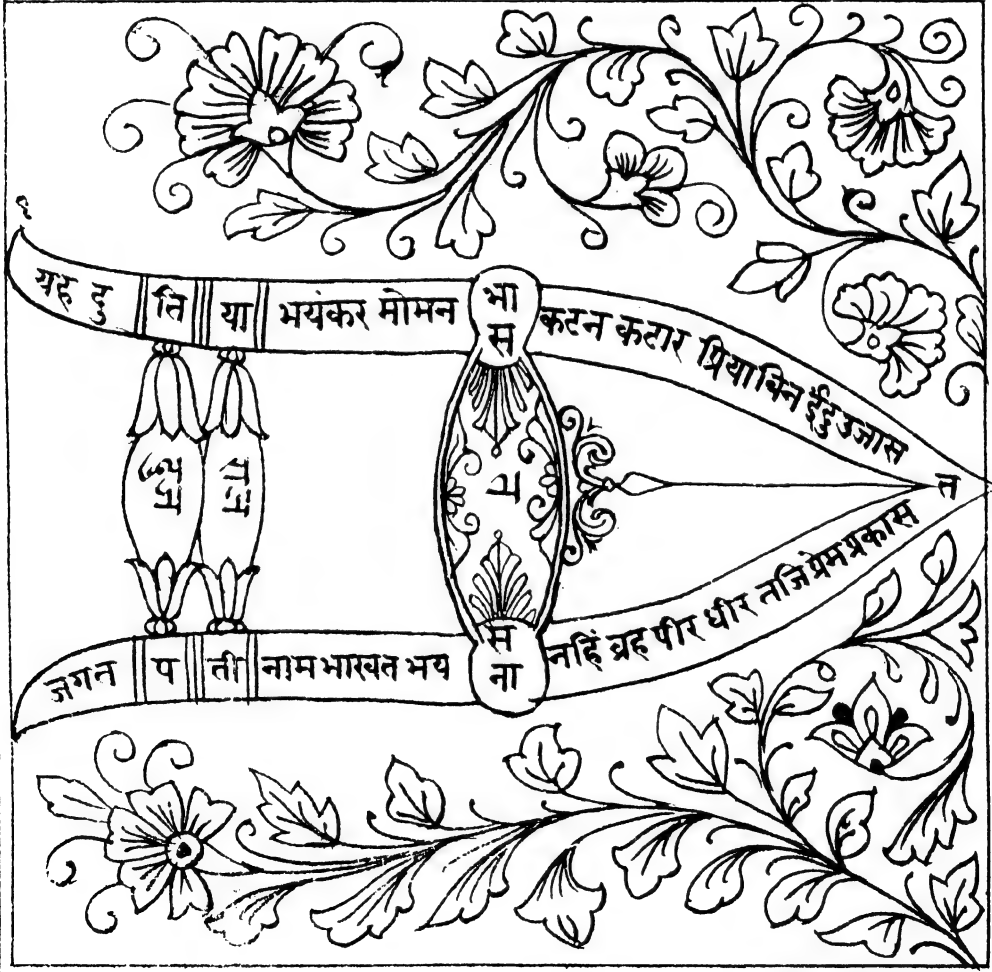 यह दु ति या भयंकर मोमन भा स कटन कटार प्रिया बिन ईंदु उजास त
जगन प ती नाम भाखत भय स ना नहिं ब्रह पीर धीर तजि प्रेम प्रकास